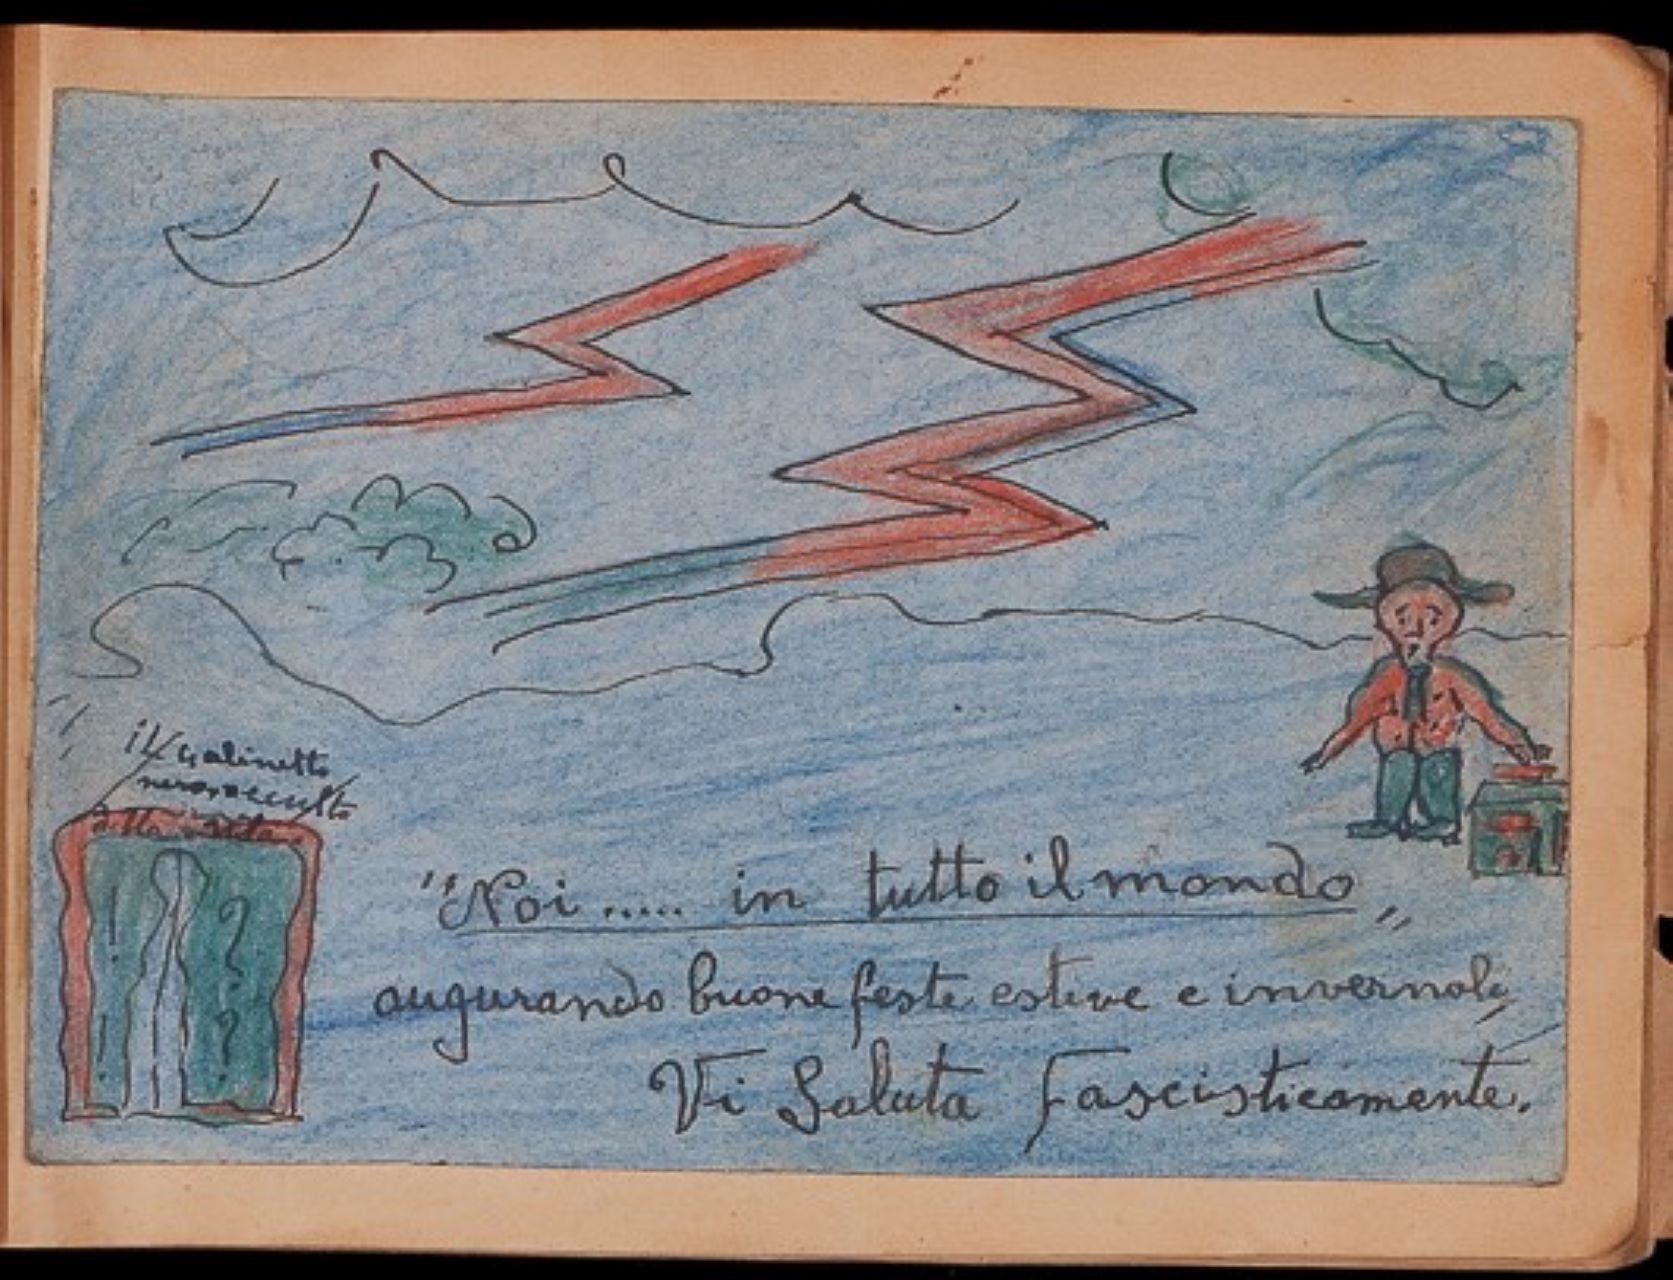 il Gabinetto
nero occulto
della
"Noi ..... in tutto il mondo"
augurando buone feste estive e invernali,
Vi Saluta Fascisticamente.
! ?
! ?